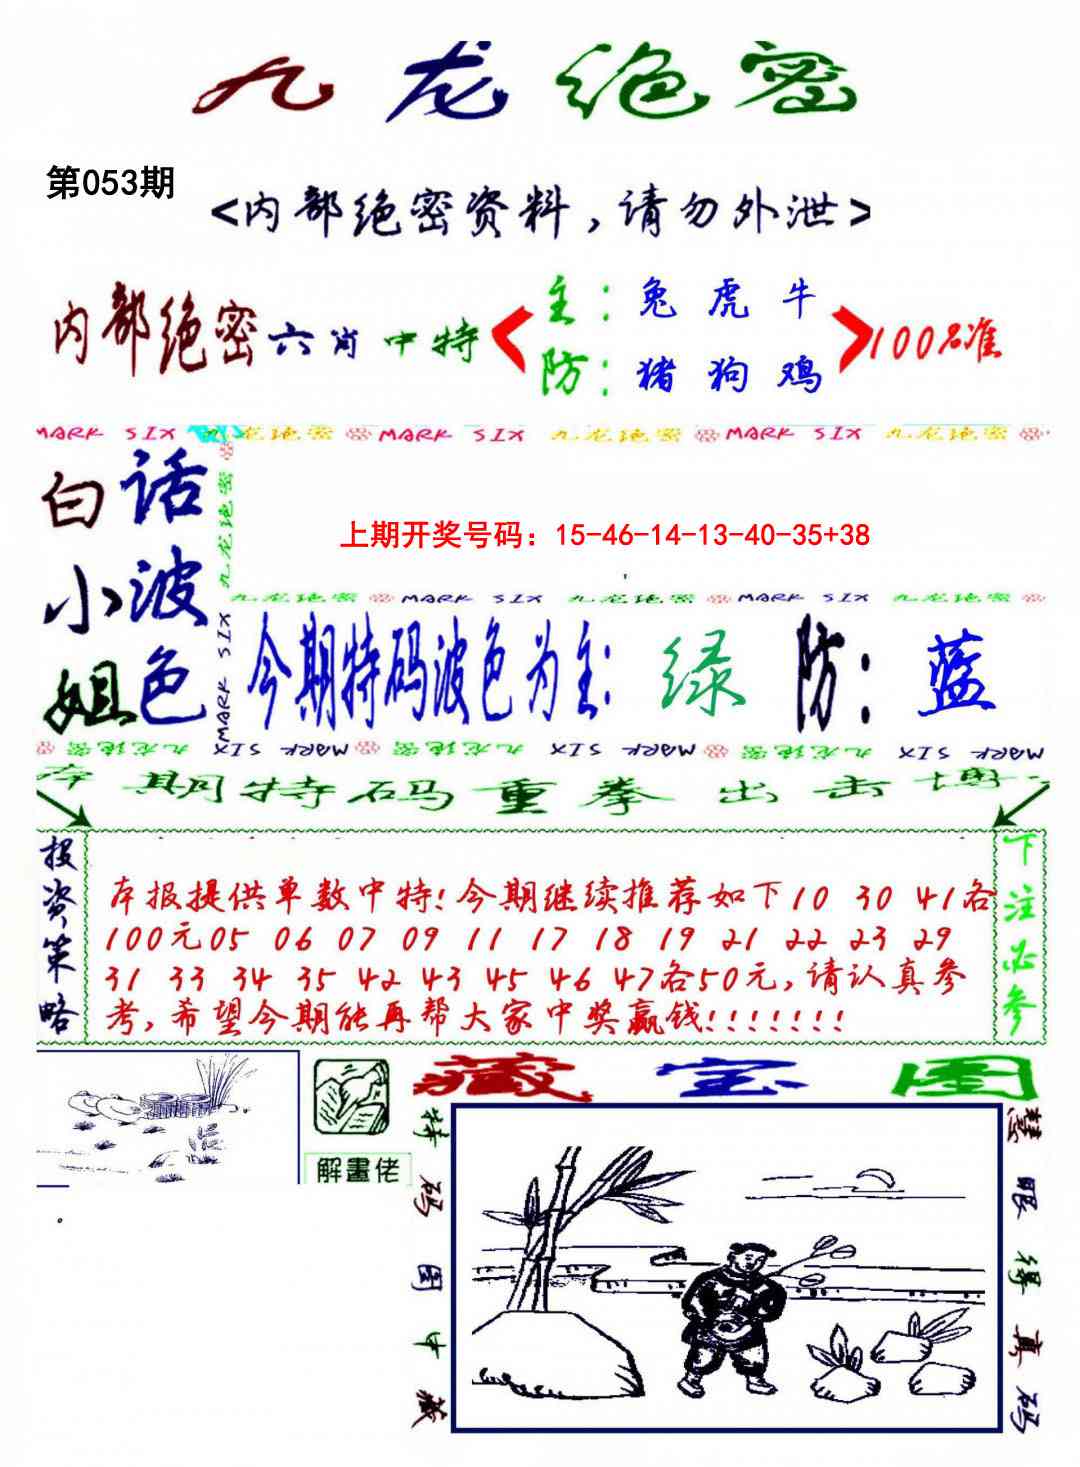 九龙绝密
第053期
<内部绝密资料，请勿外泄>
内部绝密六肖中特
主：兔 虎 牛
防：猪 狗 鸡
100%准
MARK SIX 九龙绝密 MARK SIX 九龙绝密 MARK SIX 九龙绝密
白小姐
话波色
九龙绝密
MARK SIX
上期开奖号码：15-46-14-13-40-35+38
九龙绝密 MARK SIX 九龙绝密 MARK SIX 九龙绝密
今期特码波色为主：绿 防：蓝
九龙绝密 MARK SIX 九龙绝密 MARK SIX 九龙绝密 MARK SIX
本期特码重拳出击博
投资策略
本报提供单数中特！今期继续推荐如下10 30 41各
100元05 06 07 09 11 17 18 19 21 22 23 29
31 33 34 35 42 43 45 46 47各50元，请认真参
考，希望今期能再帮大家中奖赢钱！！！！！！！
下注必参
解畫佬
藏宝图
特码图中藏
慧眼得真码